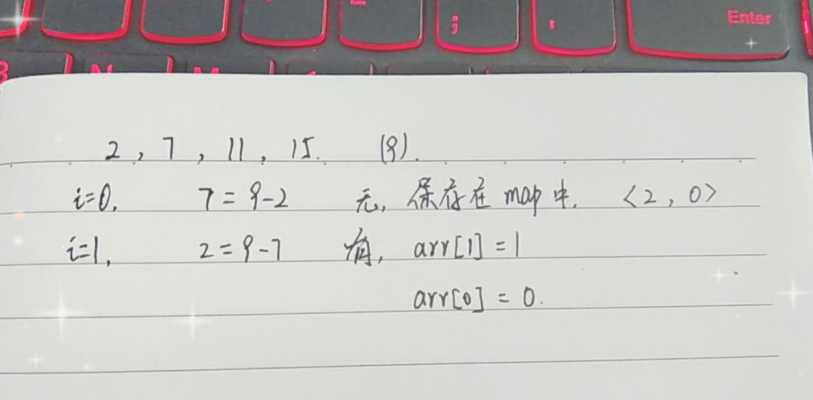 Enter
2, 7, 11, 15. (9).
i=0, 7=9-2 无, 保存在 map 中. <2, 0>
i=1, 2=9-7 有, arr[1]=1
arr[0]=0.